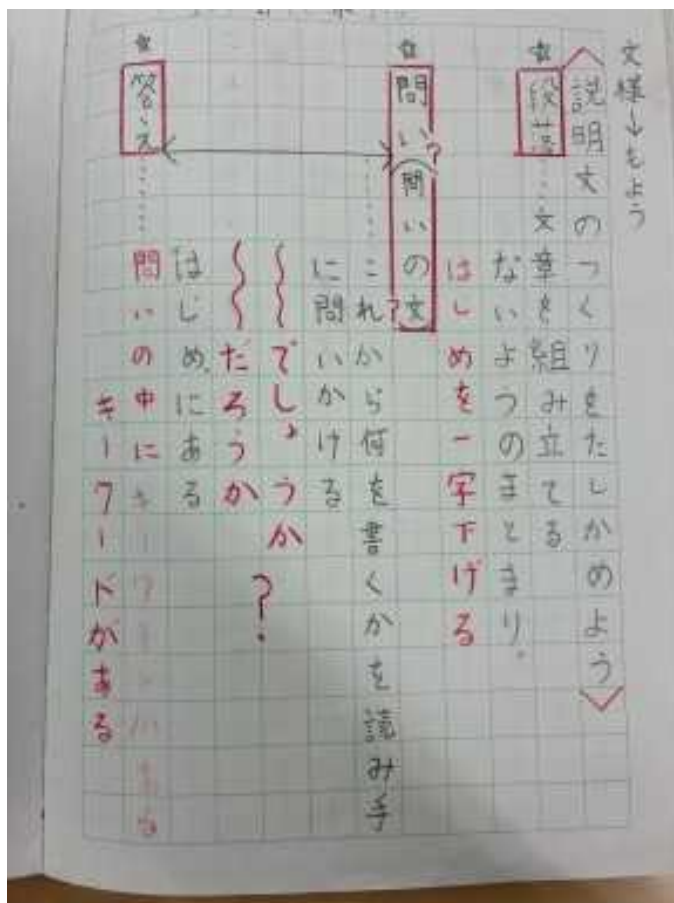 文様→もよう
説明文のつくりをたしかめよう
☆段落……文章を組み立てる
ないようのまとまり。
はじめを一字下げる
☆問い?(問いの文?
……これから何を書くかを読み手
に問いかける
〜〜でしょうか
〜〜だろうか?
はじめにある
☆答え……問いの中に
キーワードがある